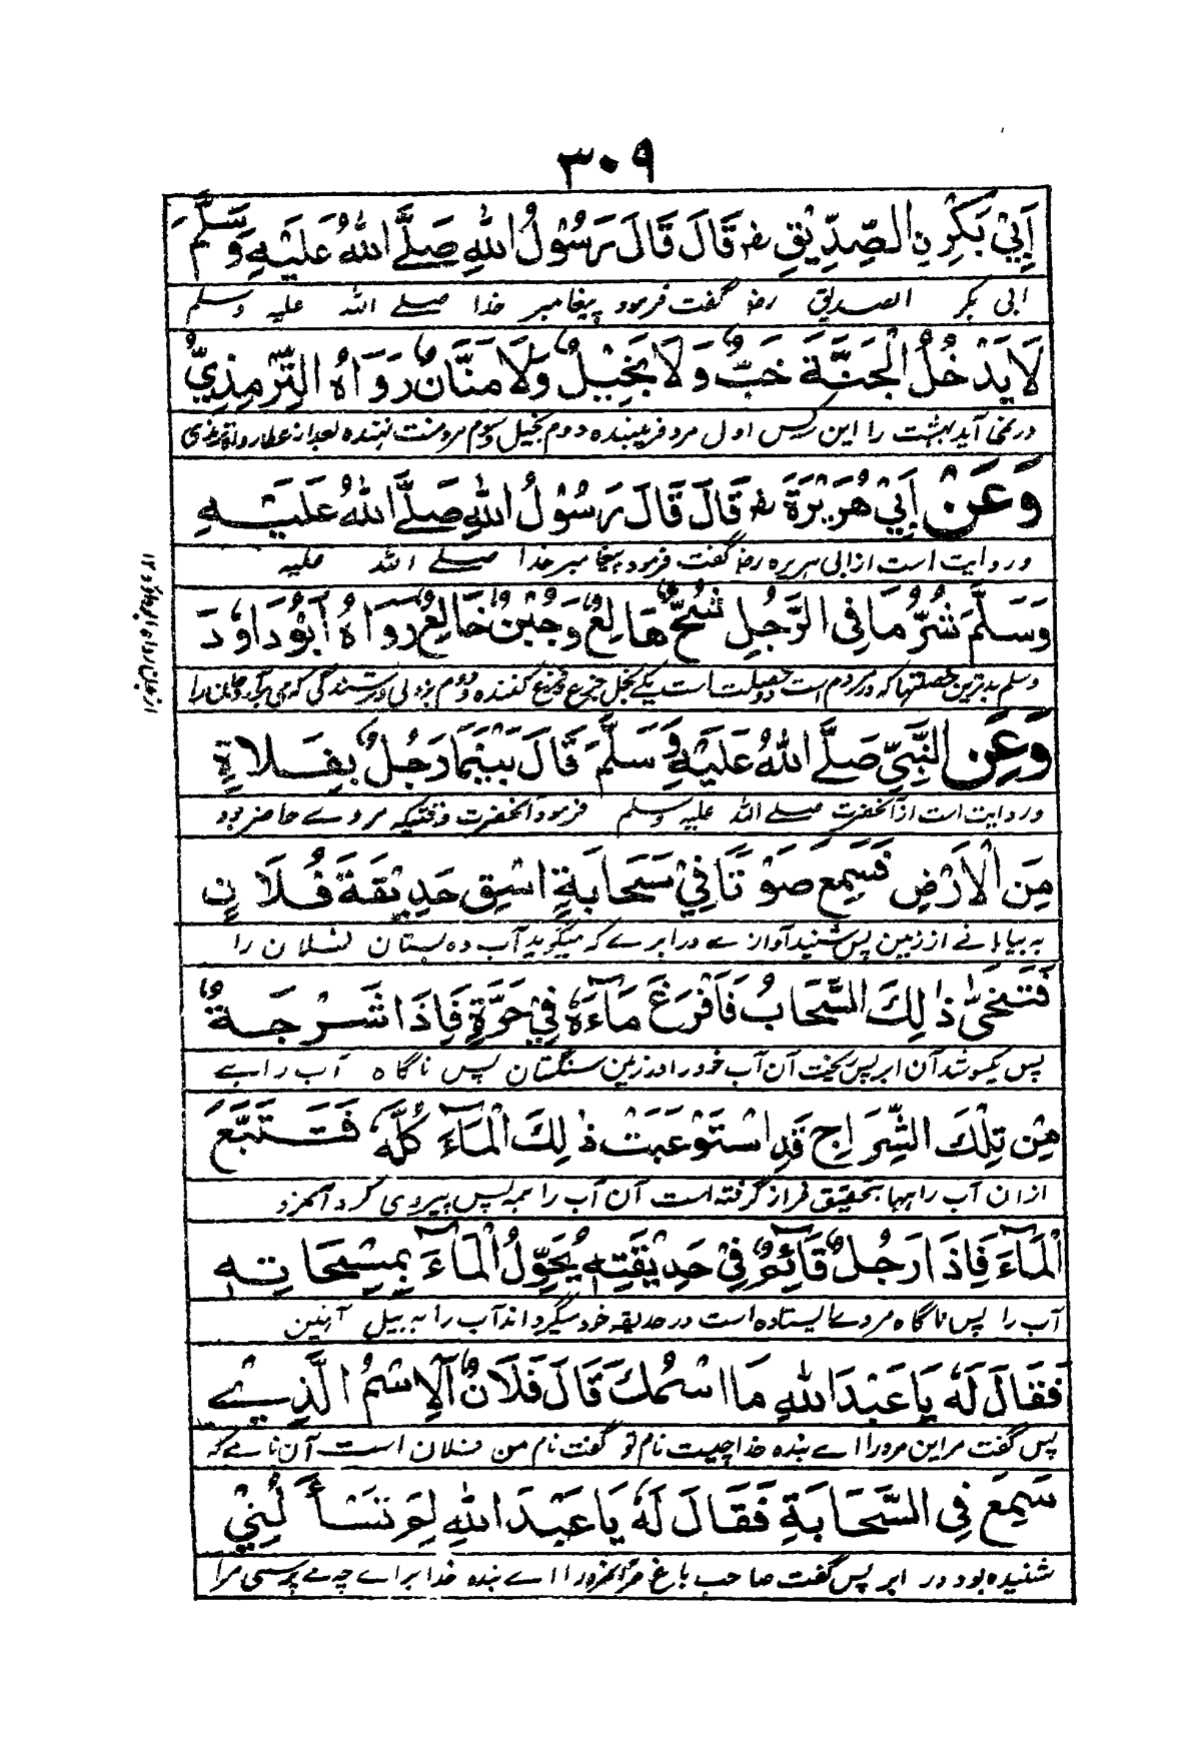 ٣٠٩
اَبِيْ بَكْرِنِ الصِّدِّيْقِ رض قَالَ قَالَ رَسُوْلُ اللهِ صَلَّے اللهُ عَلَيْهِ وَسَلَّمَ
ابی بکر الصدیق رض گفت فرمود پیغامبر خدا صلے اللہ علیہ وسلم
لَا يَدْخُلُ الْجَنَّةَ خَبٌّ وَلَا بَخِيْلٌ وَلَا مَنَّانٌ رَوَاهُ التِّرْمِذِيُّ
در نمی آید بہشت را این کس اول مرد فریبندہ دوم بخیل وسوم مرد منت نہندہ بعد از عطا رواہ ترمذی
وَعَنْ اَبِيْ هُرَيْرَةَ رض قَالَ قَالَ رَسُوْلُ اللهِ صَلَّے اللهُ عَلَيْهِ
و روایت است از ابی ہریرہ رض گفت فرمود پیغامبر خدا صلے اللہ علیہ
وَسَلَّمَ شَرُّ مَا فِى الرَّجُلِ شُحٌّ هَالِعٌ وَجُبْنٌ خَالِعٌ رَوَاهُ اَبُوْ دَاوٗدَ
وسلم بدترین خصلتہا کہ در مردم است دو خصلت است یکے بخل جزع وفزع کنندہ و دوم بزدلی و ترسندگی کہ را
وَعَنِ النَّبِيِّ صَلَّے اللهُ عَلَيْهِ وَسَلَّمَ قَالَ بَيْنَمَا رَجُلٌ بِفَلَاةٍ
و روایت است از آنحضرت صلے اللہ علیہ وسلم فرمود آنحضرت وقتیکہ مردے حاضر بود
مِنَ الْاَرْضِ فَسَمِعَ صَوْتًا فِيْ سَحَابَةٍ اسْقِ حَدِيْقَةَ فُلَانٍ
بہ بیابانے از زمین پس شنید آوازے در ابرے کہ میگوید آب دہ بستان فلان را
فَتَنَحّٰى ذٰلِكَ السَّحَابُ فَاَفْرَغَ مَاءَهٗ فِيْ حَرَّةٍ فَاِذَا شَرْجَةٌ
پس یکسو شد آن ابر پس ریخت آن آب خود را در زمین سنگستان پس ناگاہ آب راہے
مِنْ تِلْكَ الشِّرَاجِ قَدِ اسْتَوْعَبَتْ ذٰلِكَ الْمَاءَ كُلَّهٗ فَتَتَبَّعَ
ازان آب راہہا بتحقیق فراز گرفتہ است آن آب را ہمہ پس پیروی کرد آنمرد
الْمَاءَ فَاِذَا رَجُلٌ قَائِمٌ فِيْ حَدِيْقَتِهٖ يُحَوِّلُ الْمَاءَ بِمِسْحَاتِهٖ
آب را پس ناگاہ مردے ایستادہ است در حدیقہ خود میگرداند آب را بہ بیل آہنین
فَقَالَ لَهٗ يَا عَبْدَ اللهِ مَا اسْمُكَ قَالَ فُلَانٌ اَلْاِسْمُ الَّذِيْ
پس گفت مراین مرد را اے بندہ خدا چیست نام تو گفت نام من فلان است آن نامے کہ
سَمِعَ فِى السَّحَابَةِ فَقَالَ لَهٗ يَا عَبْدَ اللهِ لِمَ تَسْأَلُنِيْ
شنیدہ بود در ابر پس گفت صاحب باغ مر آنمرد را اے بندہ خدا براے چہ مے پرسی مرا